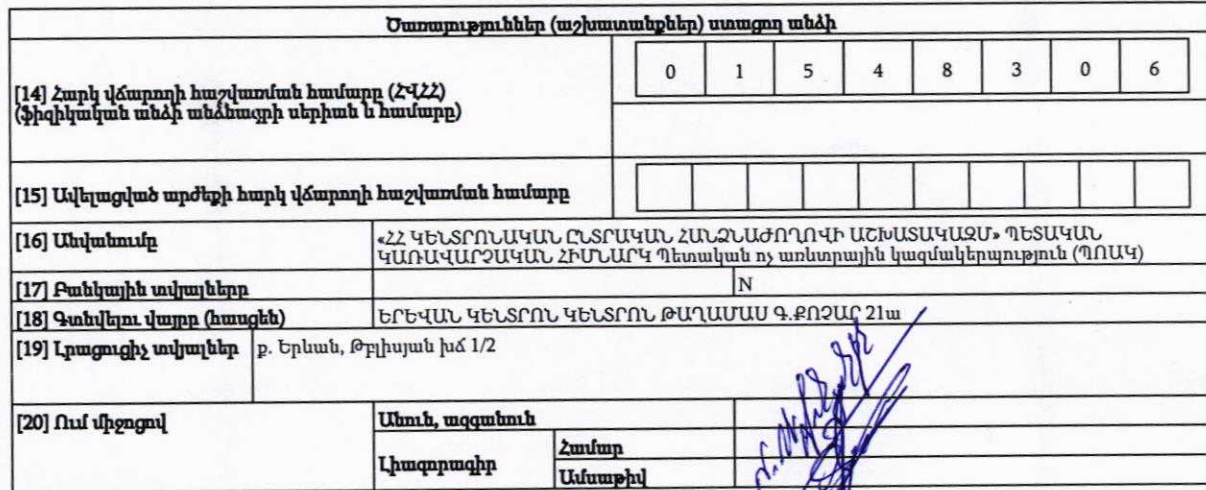 Ծառայություններ (աշխատանքներ) ստացող անձի
[14] Հարկ վճարողի հաշվառման համարը (ՀՎՀՀ)
(ֆիզիկական անձի անձնագրի սերիան և համարը)
0 1 5 4 8 3 0 6
[15] Ավելացված արժեքի հարկ վճարողի հաշվառման համարը
[16] Անվանումը
«ՀՀ ԿԵՆՏՐՈՆԱԿԱՆ ԸՆՏՐԱԿԱՆ ՀԱՆՁՆԱԺՈՂՈՎԻ ԱՇԽԱՏԱԿԱԶՄ» ՊԵՏԱԿԱՆ
ԿԱՌԱՎԱՐՉԱԿԱՆ ՀԻՄՆԱՐԿ Պետական ոչ առևտրային կազմակերպություն (ՊՈԱԿ)
[17] Բանկային տվյալները N
[18] Գտնվելու վայրը (հասցեն) ԵՐԵՎԱՆ ԿԵՆՏՐՈՆ ԿԵՆՏՐՈՆ ԹԱՂԱՄԱՍ Գ.ՔՈՉԱՐ 21ա
[19] Լրացուցիչ տվյալներ ք. Երևան, Թբիլիսյան խճ 1/2
[20] Ում միջոցով
Անուն, ազգանուն
Լիազորագիր
Համար
Ամսաթիվ